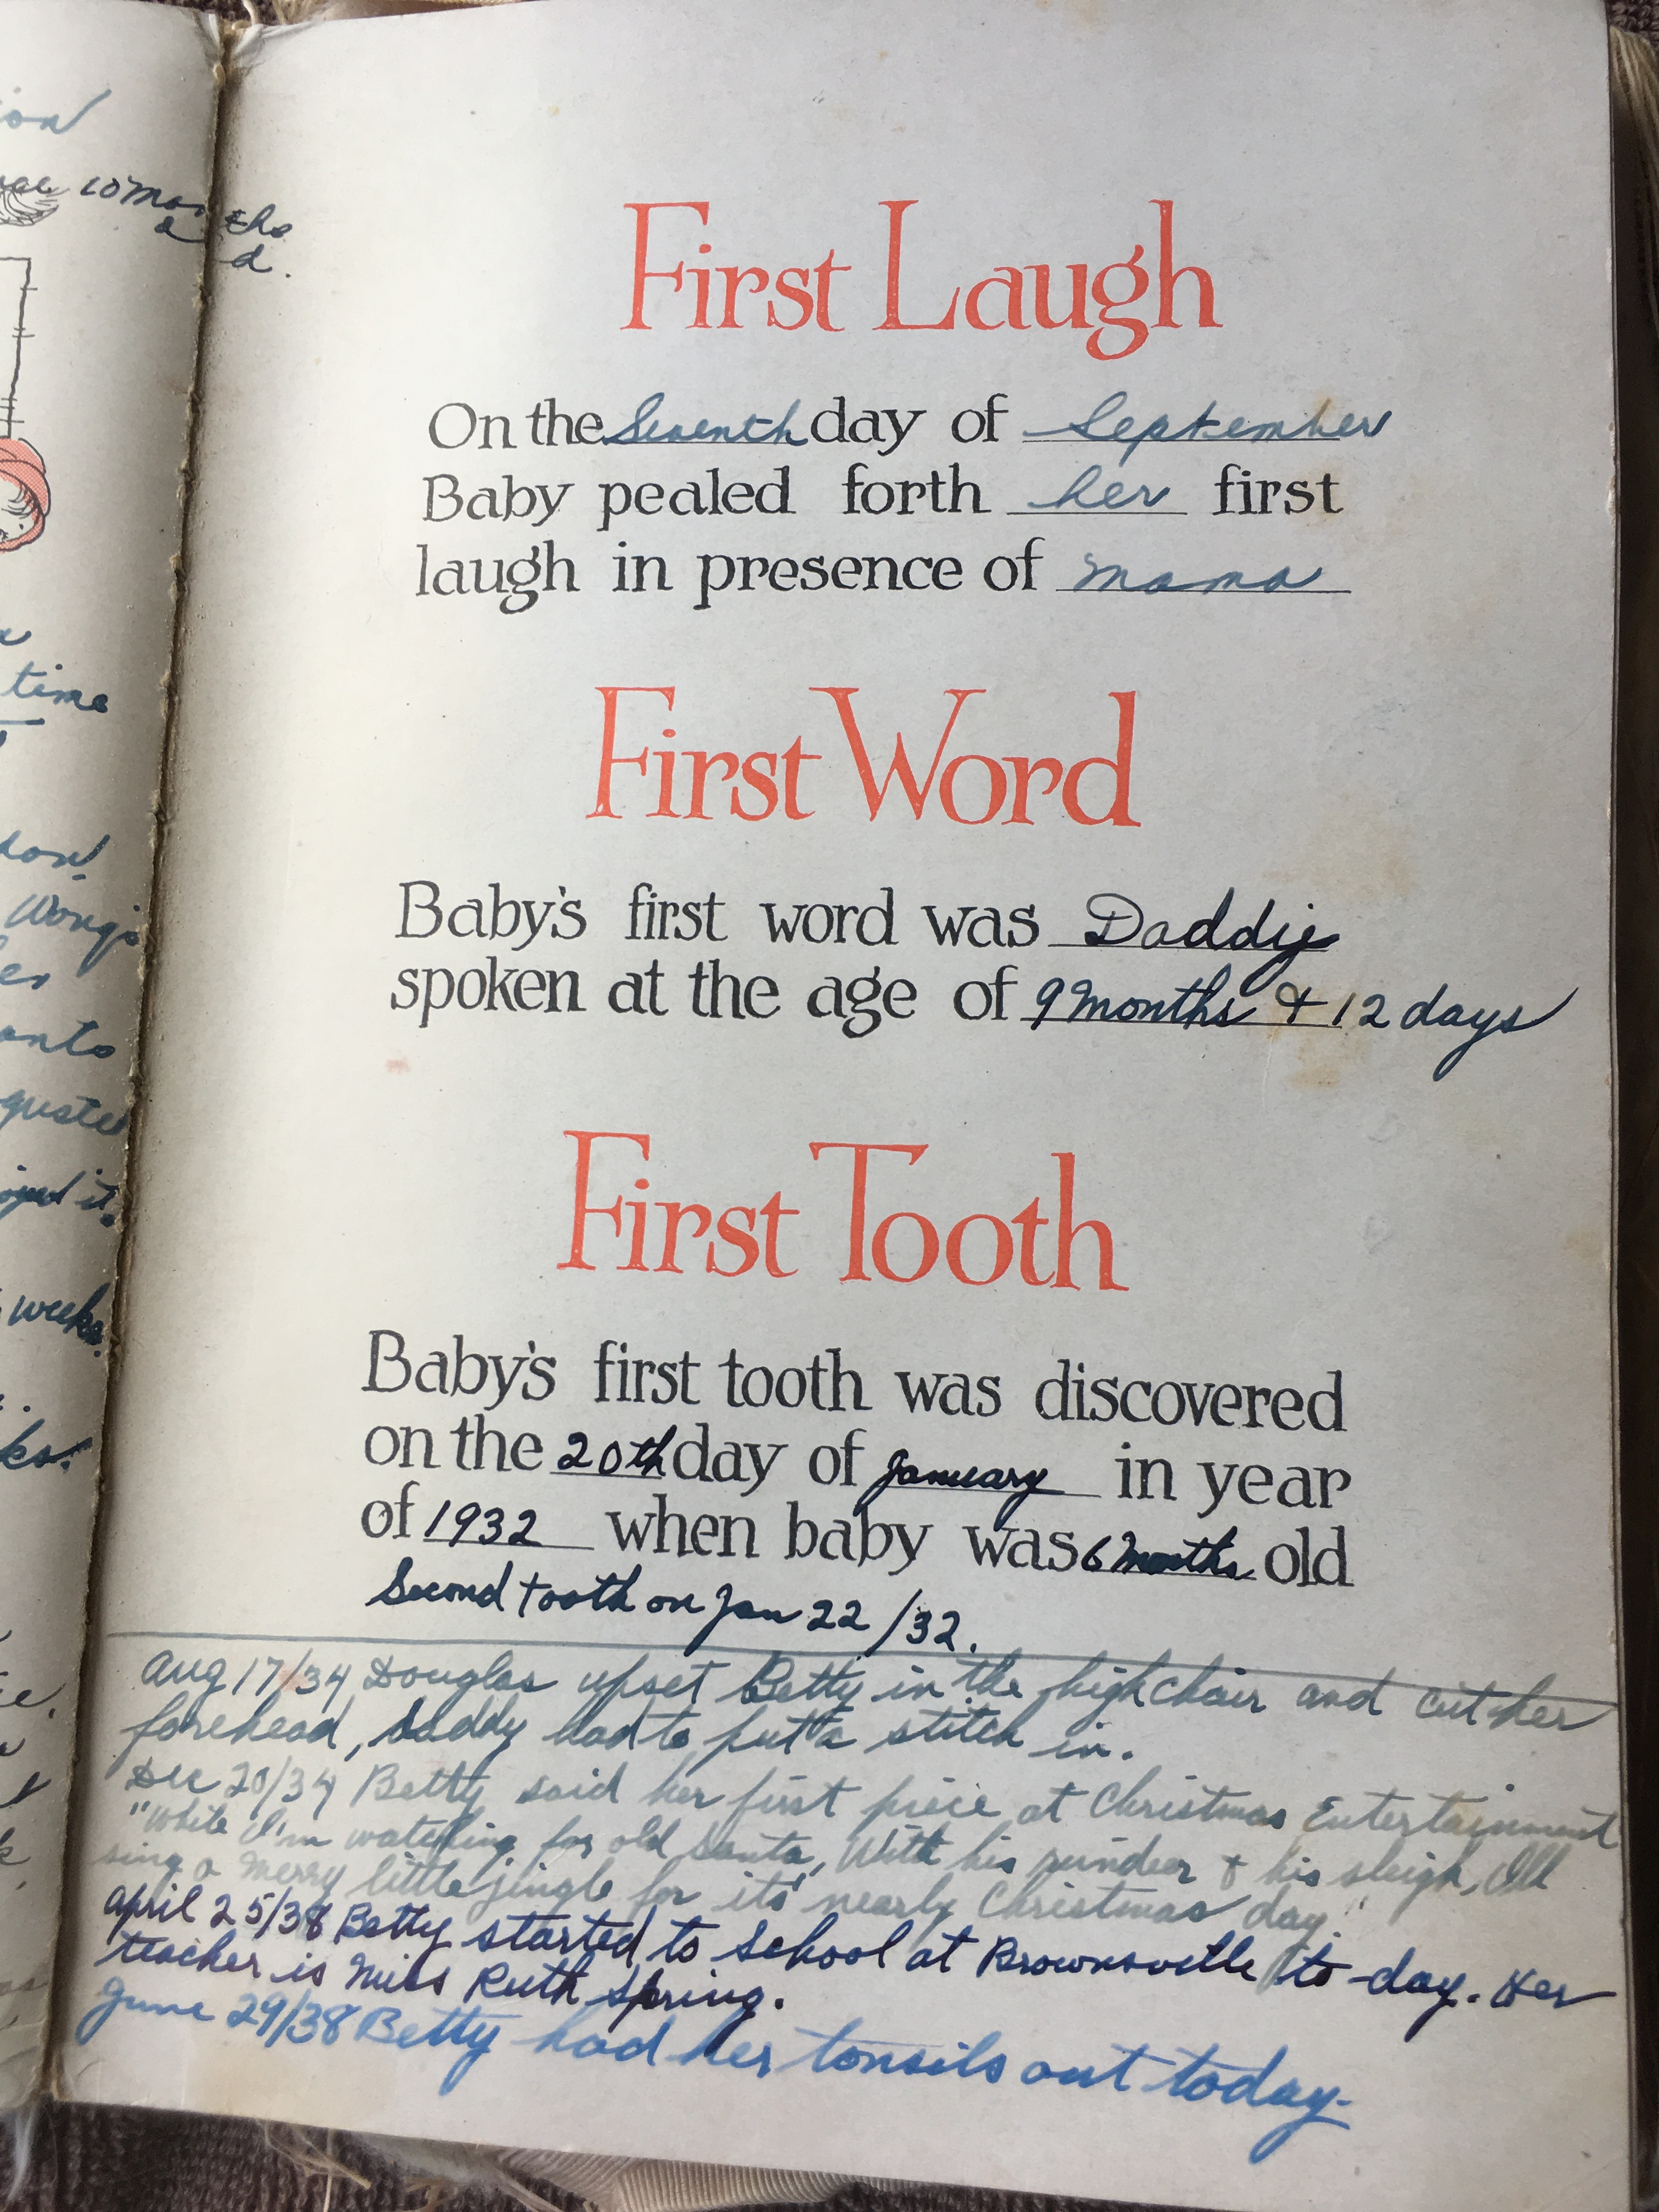 ion
10 Months
d.
time
Wong's
er
onto
it.
weeks.
First Laugh
On the Seventh day of September
Baby pealed forth her first
laugh in presence of Mama
First Word
Baby's first word was Daddy
spoken at the age of 9 months & 12 days
First Tooth
Baby's first tooth was discovered
on the 20th day of January in year
of 1932 when baby was 6 Months old
Second tooth on Jan 22/32.
Aug 17/34 Douglas upset Betty in the high chair and cut her
forehead, Daddy had to put a stitch in.
Dec 20/34 Betty said her first piece at Christmas Entertainment
"While I'm watching for old Santa, With his reindeer & his sleigh, Ill
sing a merry little jingle for its' nearly Christmas day."
April 25/38 Betty started to School at Brownsville to-day. Her
teacher is Miss Ruth Spring.
June 29/38 Betty had her tonsils out today.